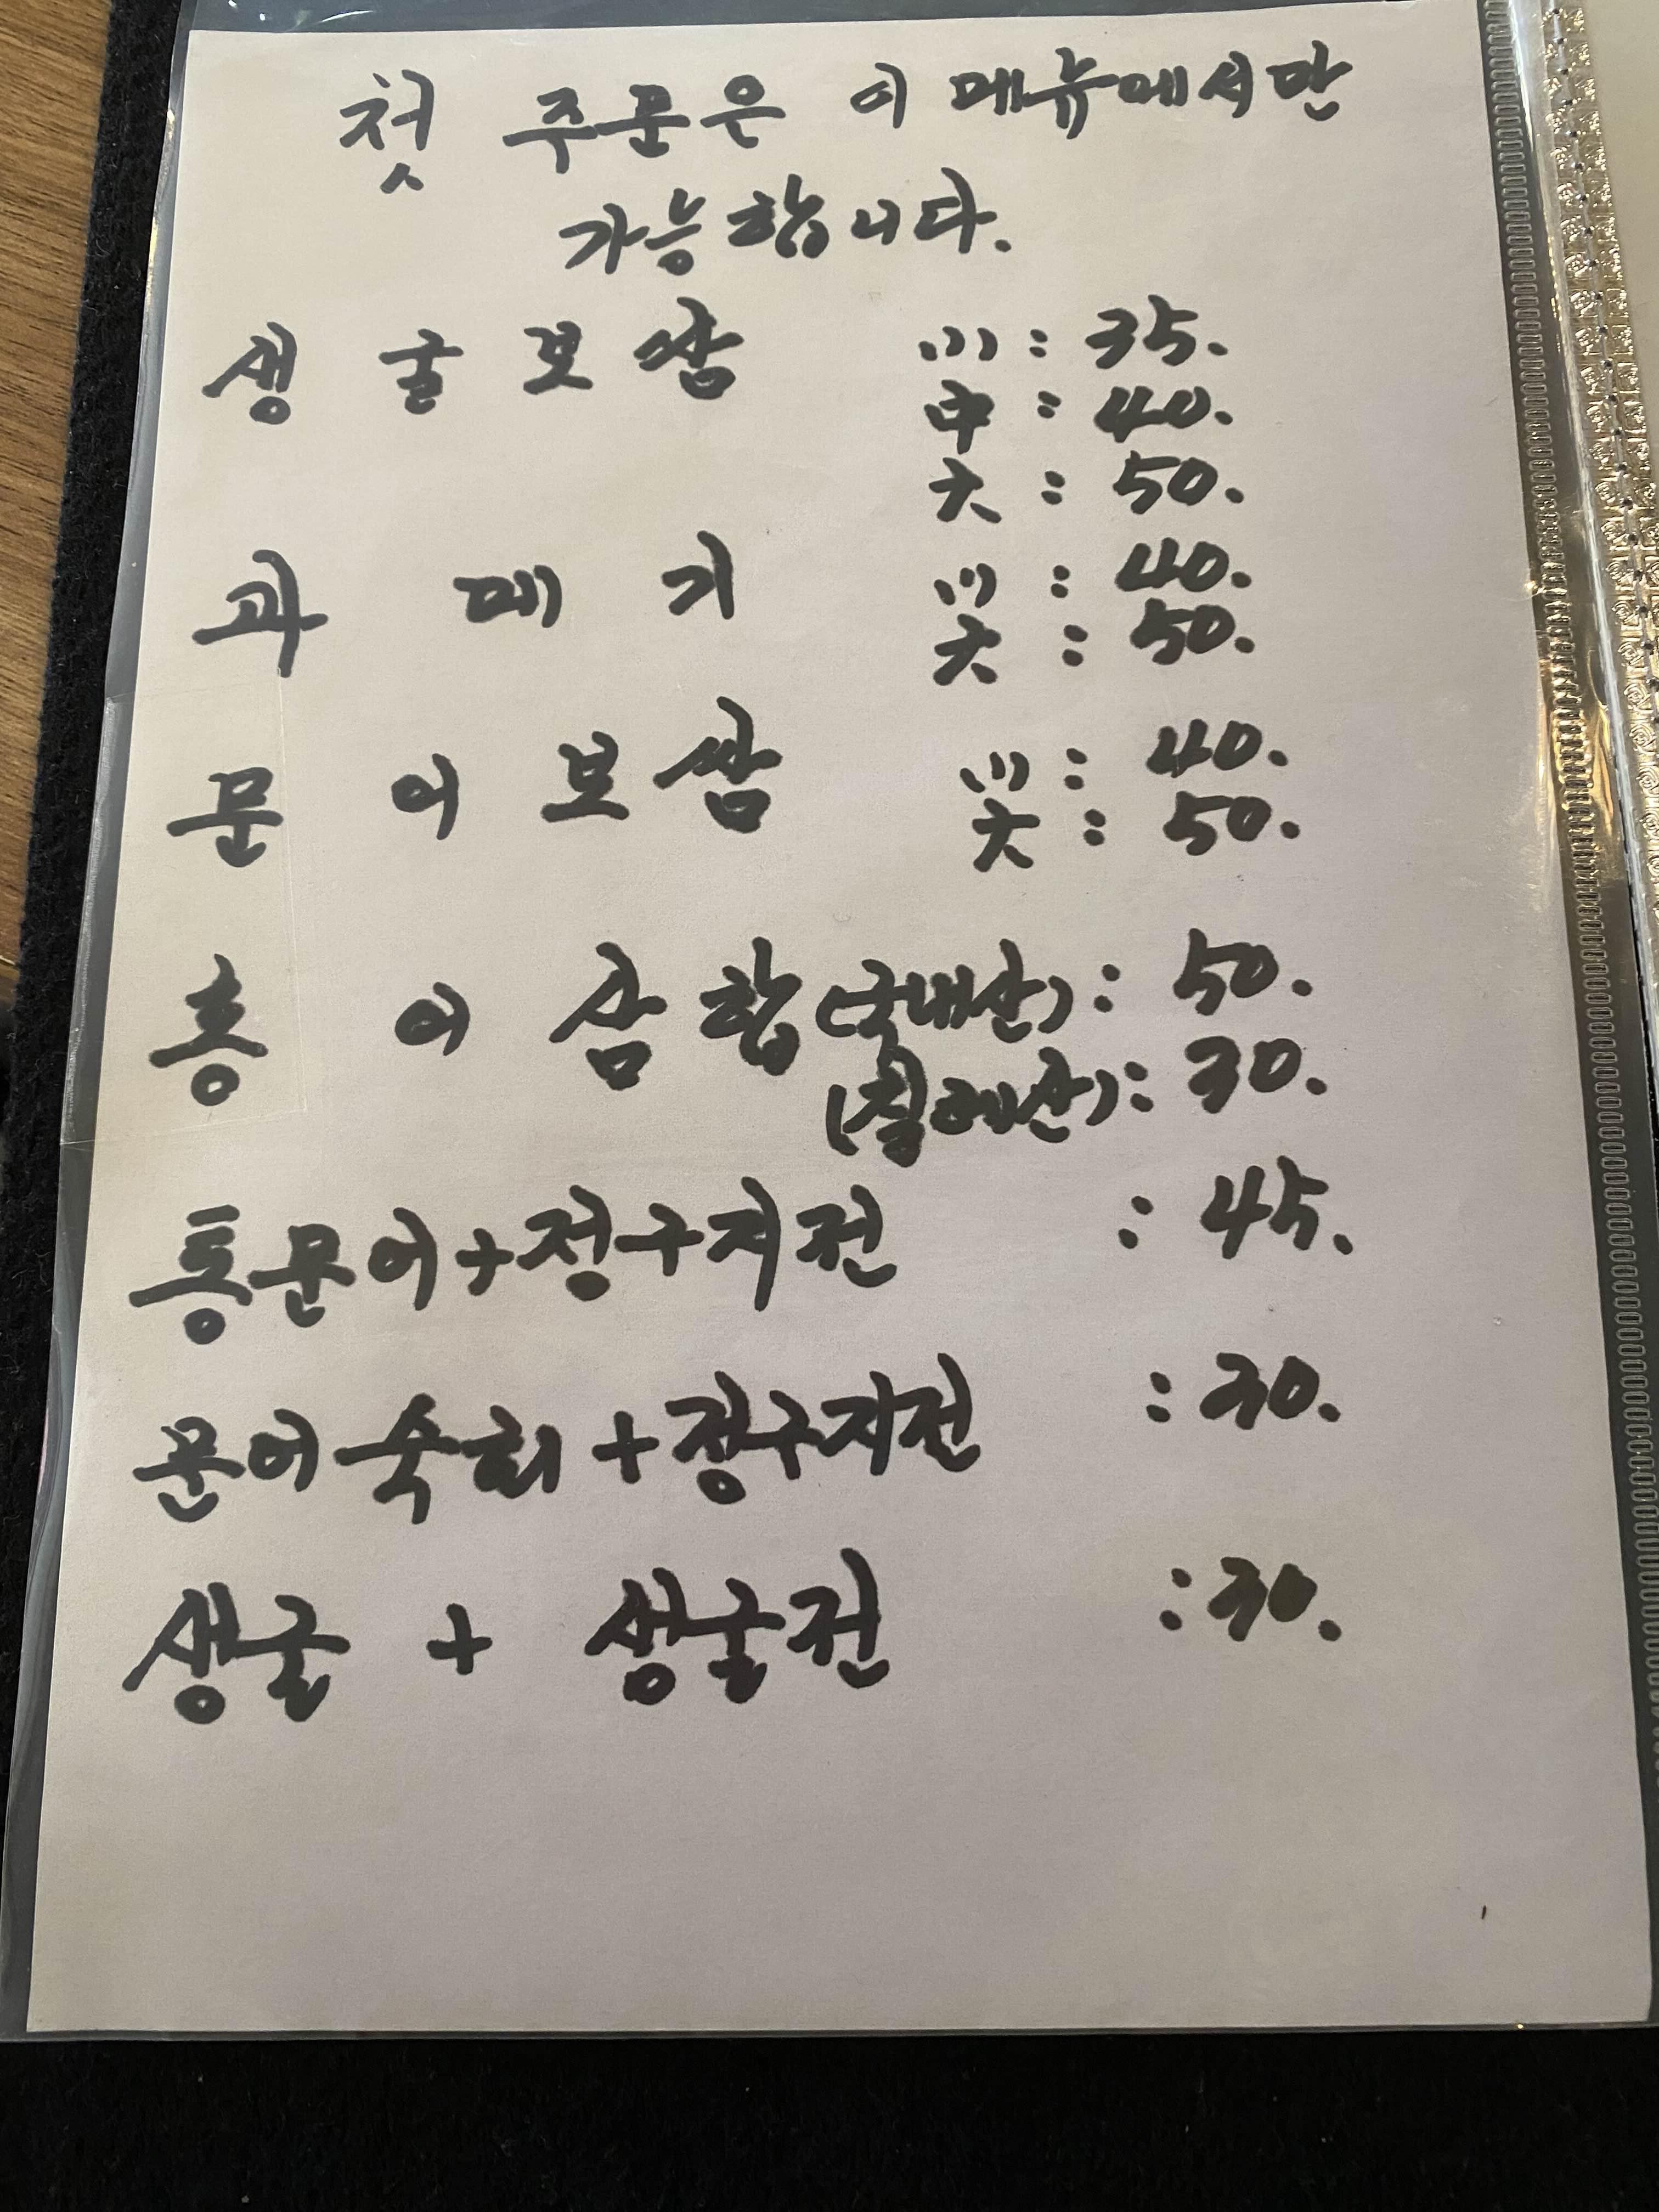 첫 주문은 이 메뉴에서만
가능합니다.
생굴보쌈 小 : 35.
中 : 40.
大 : 50.
과메기 小 : 40.
大 : 50.
문어보쌈 小 : 40.
大 : 50.
홍어삼합 (국내산) : 50.
(칠레산) : 30.
통문어+정구지전 : 45.
문어숙회+정구지전 : 30.
생굴 + 생굴전 : 30.